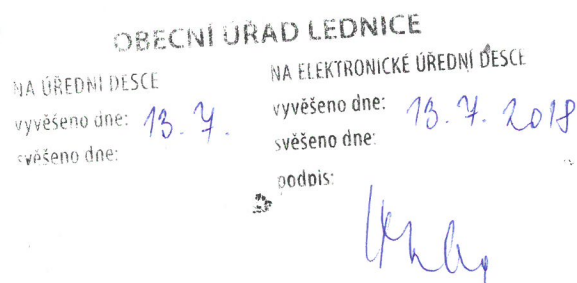 OBECNÍ ÚŘAD LEDNICE
NA ÚŘEDNÍ DESCE
vyvěšeno dne: 13. 7.
svěšeno dne:
NA ELEKTRONICKÉ ÚŘEDNÍ DESCE
vyvěšeno dne: 13. 7. 2018
svěšeno dne:
podpis: